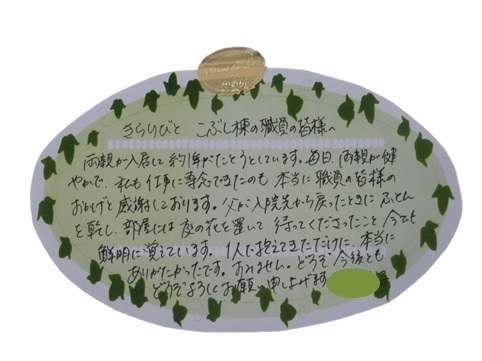 きらりびと こぶし棟の職員の皆様へ
両親が入居して約1年がたとうとしています。毎日、両親が健
やかで、私も仕事に専念できたのも本当に職員の皆様の
おかげと感謝しております。父が入院先から戻ったときにふとん
を乾し、部屋には庭の花を還いて待ってくださったこと今でも
鮮明に覚えています。1人で抱えてきただけに、本当に
ありがたかったです。すみません。どうぞ今後とも
どうぞよろしくお願い申し上げます